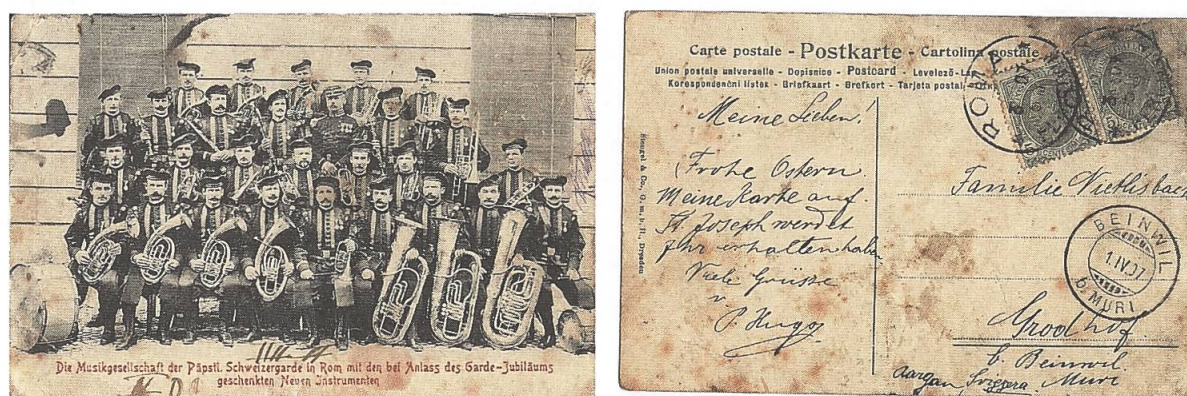 Die Musikgesellschaft der Päpstl. Schweizergarde in Rom mit den bei Anlass des Garde-Jubiläums
geschenkten Neuen Instrumenten
Carte postale - Postkarte - Cartolina postale
Union postale universelle - Dopisnice - Postcard - Levelező-
Korespondenční lístek - Briefkaart - Brefkort - Tarjeta postal
Stengel & Co., G. m. b. H., Dresden
Meine Lieben!
Frohe Ostern.
Meine Karte auf
St. Joseph werdet
Ihr erhalten haben
Viele Grüsse
v.
P. Hugo
ROMA
Familie Vietlisbach
BEINWIL
1.IV.07
b. MURI
Grodhof
b. Beinwil.
Aargau Svizzera Muri